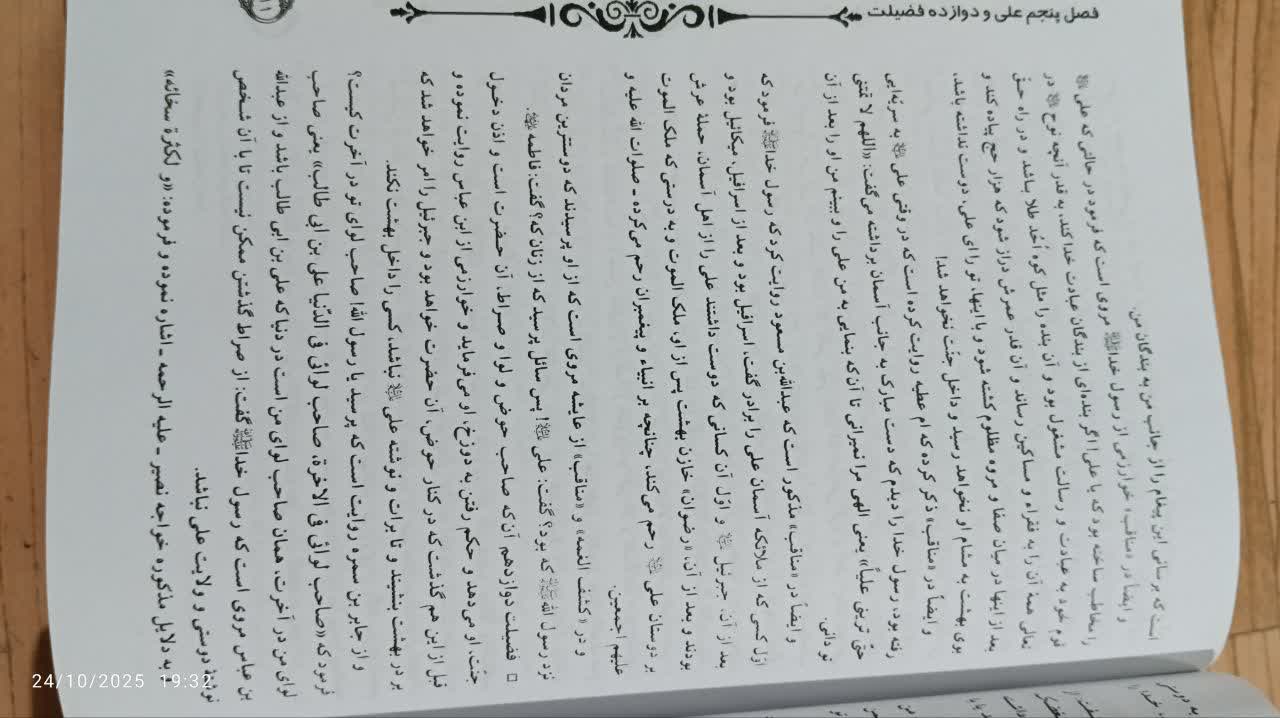 فصل پنجم علی و دوازده فضیلت
است که برسانی این پیغام را از جانب من به بندگان من.
و ایضاً در «مناقب» خوارزمی از رسول خدا ﷺ مروی است که فرمود در حالتی که علی
را مخاطب ساخته بود که یا علی! اگر بنده‌ای از بندگان عبادت خدا کند، به قدر آنچه نوح در
قوم خود به عبادت و رسالت مشغول بود و آن بنده را مثل کوه اُحُد طلا باشد و در راه حقّ
تعالی همهٔ آن را به فقراء و مساکین رساند و آن قدر عمرش دراز شود که هزار حج پیاده کند و
بعد از اینها در میان صفا و مروه مظلوم کشته شود و با اینها، تو را ای علی، دوست نداشته باشد،
بوی بهشت به مشام او نخواهد رسید و داخل جنّت نخواهد شد!
و ایضاً در «مناقب» ذکر کرده که ام عطیه روایت کرده است که در وقتی علی به سریّه‌ایی
رفته بود، رسول خدا را دیدم که دست مبارک به جانب آسمان برداشته می‌گفت: «اللهم لا تمتنی
حتّی ترینی علیاً» یعنی الهی مرا نمیرانی تا آن‌که بنمایی به من علی را و ببینم من او را بعد از آن
تو دانی.
و ایضاً در «مناقب» مذکور است که عبدالله‌بن مسعود روایت کرد که رسول خدا ﷺ فرمود که
اوّل کسی که از ملائکه آسمان علی را برادر گفت، اسرافیل بود و بعد از اسرافیل، میکائیل بود و
بعد از آن، جبرئیل و اوّل آن کسانی که دوست داشتند علی را از اهل آسمان، حملهٔ عرش
بودند و بعد از آن، «رضوان» خازن بهشت پس از او، ملک الموت و به درستی که ملک الموت
بر دوستان علی رحم می‌کند، چنانچه بر انبیاء و پیغمبران رحم می‌کرده ـ صلوات الله علیه و
علیهم اجمعین.
و در «کشف الغمه» و «مناقب» از عایشه مروی است که از او پرسیدند که دوستترین مردان
نزد رسول الله ﷺ که بود؟ گفت: علی! پس سائل پرسید که از زنان که؟ گفت: فاطمه.
□ فضیلت دوازدهم آن‌که صاحب حوض و لوا و صراط، آن حضرت است و اذن دخول
جنّت، او می‌دهد و حکم رفتن به دوزخ، او می‌فرماید و خوارزمی از ابن عباس روایت نموده و
قبل از این هم گذشت که در کنار حوض، آن حضرت خواهد بود و جبرئیل را امر خواهد شد که
بر در بهشت بنشیند و تا برات و نوشته علی نباشد، کسی را داخل بهشت نکند.
و از جابر بن سمره روایت است که پرسید یا رسول الله! صاحب لوای تو در آخرت کیست؟
فرمود که «صاحب لوائی فی الاخرة، صاحب لوائی فی الدّنیا علی بن ابی طالب» یعنی صاحب
لوای من در آخرت، همان صاحب لوای من است در دنیا که علی بن ابی طالب باشد و از عبدالله
بن عباس مروی است که رسول خدا ﷺ گفت: از صراط گذشتن ممکن نیست تا با آن شخص
نوشتهٔ دوستی و ولایت علی نباشد.
به دلایل مذکوره خواجه نصیر ـ علیه الرحمه ـ اشاره نموده و فرموده: «و لکثرة سخائه»
24/10/2025 19:32